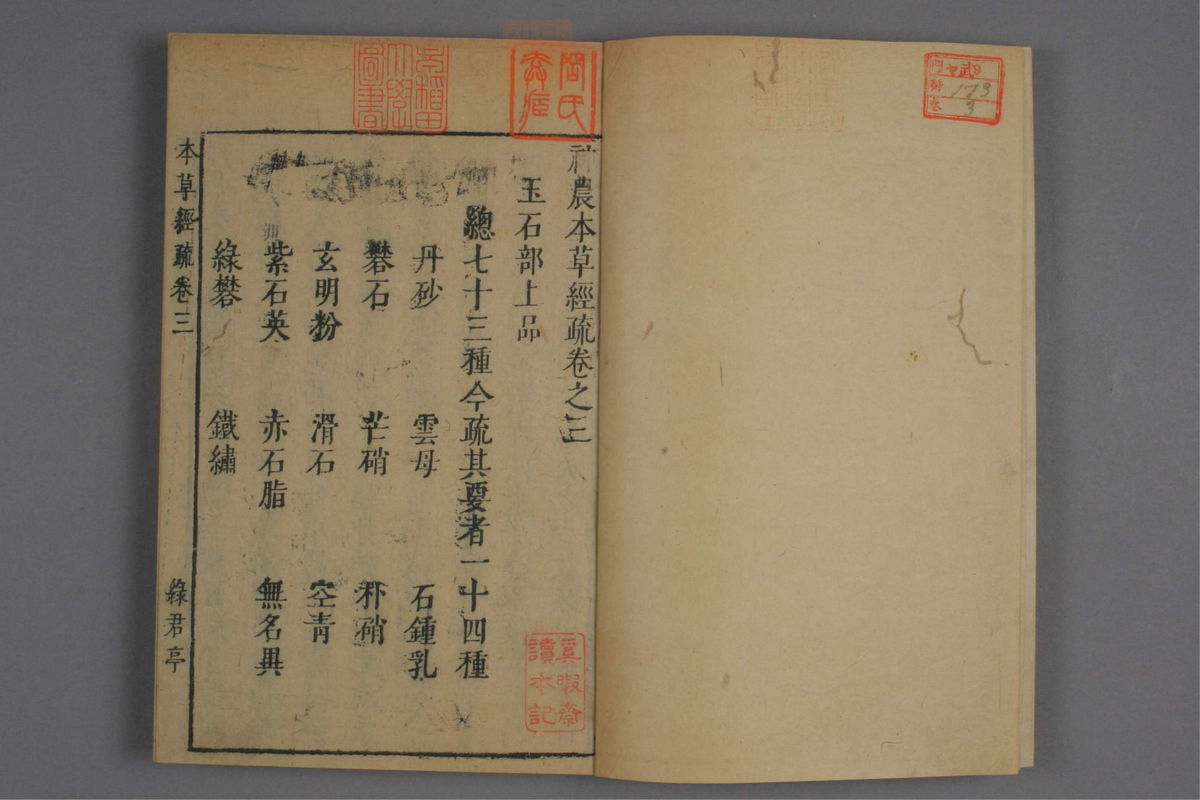 神農本草經疏卷之三
玉石部上品
總七十三種今疏其要者一十四種
丹砂 雲母 石鍾乳
礬石 芒硝 朴硝
玄明粉 滑石 空青
紫石英 赤石脂 無名異
綠礬 鐵繡
本草經疏 卷三 綠君亭
早稻田大學圖書
讀本記
173
3